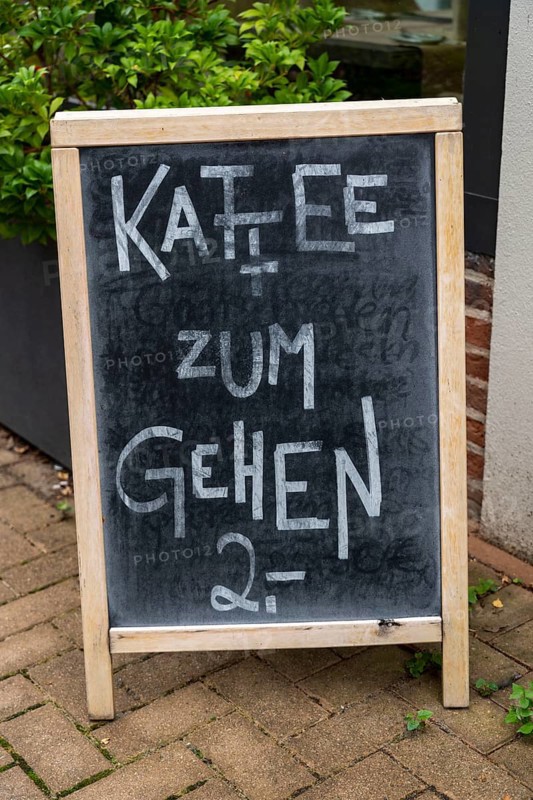 KAFFEE
ZUM
GEHEN
2.-
PHOTO12